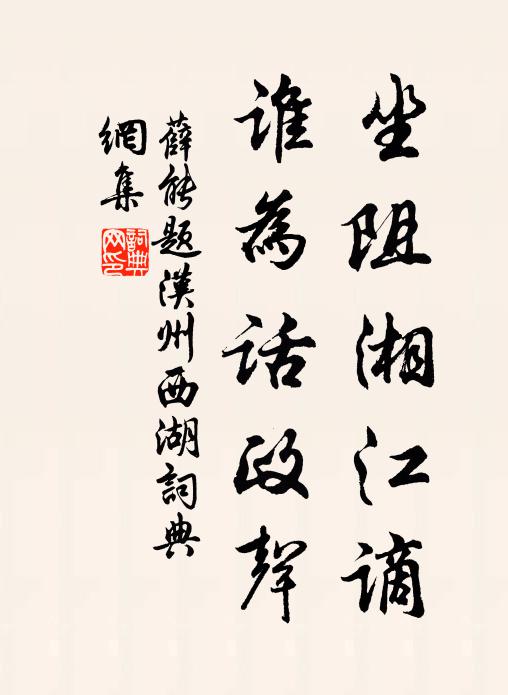 坐阻湘江謫
誰為話政聲
薛能題漢州西湖詞典
網集
詞典網印